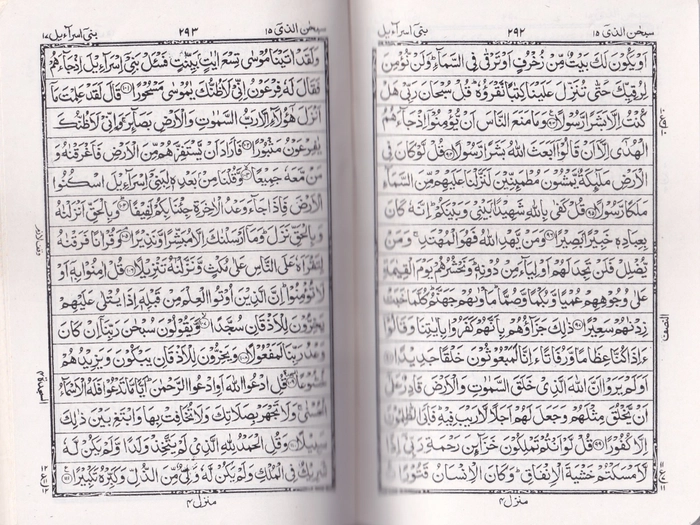 سبحٰن الذى ١٥ ٢٩٢ بنى اسرآءيل ١٧
اَوْ يَكُوْنَ لَكَ بَيْتٌ مِّنْ زُخْرُفٍ اَوْ تَرْقٰى فِى السَّمَآءِ وَلَنْ نُّؤْمِنَ
لِرُقِيِّكَ حَتّٰى تُنَزِّلَ عَلَيْنَا كِتٰبًا نَّقْرَؤُهٗ قُلْ سُبْحَانَ رَبِّىْ هَلْ
كُنْتُ اِلَّا بَشَرًا رَّسُوْلًا ۹۳ وَمَا مَنَعَ النَّاسَ اَنْ يُّؤْمِنُوْٓا اِذْ جَآءَهُمُ
الْهُدٰٓى اِلَّآ اَنْ قَالُوْٓا اَبَعَثَ اللّٰهُ بَشَرًا رَّسُوْلًا ۹۴ قُلْ لَّوْ كَانَ فِى
الْاَرْضِ مَلٰٓئِكَةٌ يَّمْشُوْنَ مُطْمَئِنِّيْنَ لَنَزَّلْنَا عَلَيْهِمْ مِّنَ السَّمَآءِ
مَلَكًا رَّسُوْلًا ۹۵ قُلْ كَفٰى بِاللّٰهِ شَهِيْدًۢا بَيْنِىْ وَبَيْنَكُمْ اِنَّهٗ كَانَ
بِعِبَادِهٖ خَبِيْرًۢا بَصِيْرًا ۹۶ وَمَنْ يَّهْدِ اللّٰهُ فَهُوَ الْمُهْتَدِ وَمَنْ
يُّضْلِلْ فَلَنْ تَجِدَ لَهُمْ اَوْلِيَآءَ مِنْ دُوْنِهٖ وَنَحْشُرُهُمْ يَوْمَ الْقِيٰمَةِ
عَلٰى وُجُوْهِهِمْ عُمْيًا وَّبُكْمًا وَّصُمًّا مَاْوٰىهُمْ جَهَنَّمُ كُلَّمَا خَبَتْ
زِدْنٰهُمْ سَعِيْرًا ۹۷ ذٰلِكَ جَزَآؤُهُمْ بِاَنَّهُمْ كَفَرُوْا بِاٰيٰتِنَا وَقَالُوْٓا
ءَاِذَا كُنَّا عِظَامًا وَّرُفَاتًا ءَاِنَّا لَمَبْعُوْثُوْنَ خَلْقًا جَدِيْدًا ۹۸
اَوَلَمْ يَرَوْا اَنَّ اللّٰهَ الَّذِىْ خَلَقَ السَّمٰوٰتِ وَالْاَرْضَ قَادِرٌ عَلٰٓى
اَنْ يَّخْلُقَ مِثْلَهُمْ وَجَعَلَ لَهُمْ اَجَلًا لَّا رَيْبَ فِيْهِ فَاَبَى الظّٰلِمُوْنَ
اِلَّا كُفُوْرًا ۹۹ قُلْ لَّوْ اَنْتُمْ تَمْلِكُوْنَ خَزَآئِنَ رَحْمَةِ رَبِّىْٓ اِذًا
لَّاَمْسَكْتُمْ خَشْيَةَ الْاِنْفَاقِ وَكَانَ الْاِنْسَانُ قَتُوْرًا ۱۰۰
النصف
منزل ٤
سبحٰن الذى ١٥ ٢٩٣ بنى اسرآءيل ١٧
وَلَقَدْ اٰتَيْنَا مُوْسٰى تِسْعَ اٰيٰتٍۢ بَيِّنٰتٍ فَسْـَٔلْ بَنِىْٓ اِسْرَآءِيْلَ اِذْ جَآءَهُمْ
فَقَالَ لَهٗ فِرْعَوْنُ اِنِّىْ لَاَظُنُّكَ يٰمُوْسٰى مَسْحُوْرًا ۱۰۱ قَالَ لَقَدْ عَلِمْتَ مَآ
اَنْزَلَ هٰٓؤُلَآءِ اِلَّا رَبُّ السَّمٰوٰتِ وَالْاَرْضِ بَصَآئِرَ وَاِنِّىْ لَاَظُنُّكَ
يٰفِرْعَوْنُ مَثْبُوْرًا ۱۰۲ فَاَرَادَ اَنْ يَّسْتَفِزَّهُمْ مِّنَ الْاَرْضِ فَاَغْرَقْنٰهُ وَ
مَنْ مَّعَهٗ جَمِيْعًا ۱۰۳ وَّقُلْنَا مِنْۢ بَعْدِهٖ لِبَنِىْٓ اِسْرَآءِيْلَ اسْكُنُوا
الْاَرْضَ فَاِذَا جَآءَ وَعْدُ الْاٰخِرَةِ جِئْنَا بِكُمْ لَفِيْفًا ۱۰۴ وَبِالْحَقِّ اَنْزَلْنٰهُ
وَبِالْحَقِّ نَزَلَ وَمَآ اَرْسَلْنٰكَ اِلَّا مُبَشِّرًا وَّنَذِيْرًا ۱۰۵ وَقُرْاٰنًا فَرَقْنٰهُ
لِتَقْرَاَهٗ عَلَى النَّاسِ عَلٰى مُكْثٍ وَّنَزَّلْنٰهُ تَنْزِيْلًا ۱۰۶ قُلْ اٰمِنُوْا بِهٖٓ اَوْ
لَا تُؤْمِنُوْا اِنَّ الَّذِيْنَ اُوْتُوا الْعِلْمَ مِنْ قَبْلِهٖٓ اِذَا يُتْلٰى عَلَيْهِمْ
يَخِرُّوْنَ لِلْاَذْقَانِ سُجَّدًا ۱۰۷ وَّيَقُوْلُوْنَ سُبْحٰنَ رَبِّنَآ اِنْ كَانَ
وَعْدُ رَبِّنَا لَمَفْعُوْلًا ۱۰۸ وَيَخِرُّوْنَ لِلْاَذْقَانِ يَبْكُوْنَ وَيَزِيْدُهُمْ
خُشُوْعًا ۱۰۹ قُلِ ادْعُوا اللّٰهَ اَوِ ادْعُوا الرَّحْمٰنَ اَيًّا مَّا تَدْعُوْا فَلَهُ الْاَسْمَآءُ
الْحُسْنٰى وَلَا تَجْهَرْ بِصَلَاتِكَ وَلَا تُخَافِتْ بِهَا وَابْتَغِ بَيْنَ ذٰلِكَ
سَبِيْلًا ۱۱۰ وَقُلِ الْحَمْدُ لِلّٰهِ الَّذِىْ لَمْ يَتَّخِذْ وَلَدًا وَّلَمْ يَكُنْ لَّهٗ
شَرِيْكٌ فِى الْمُلْكِ وَلَمْ يَكُنْ لَّهٗ وَلِىٌّ مِّنَ الذُّلِّ وَكَبِّرْهُ تَكْبِيْرًا ۱۱۱
السجدة
منزل ٤